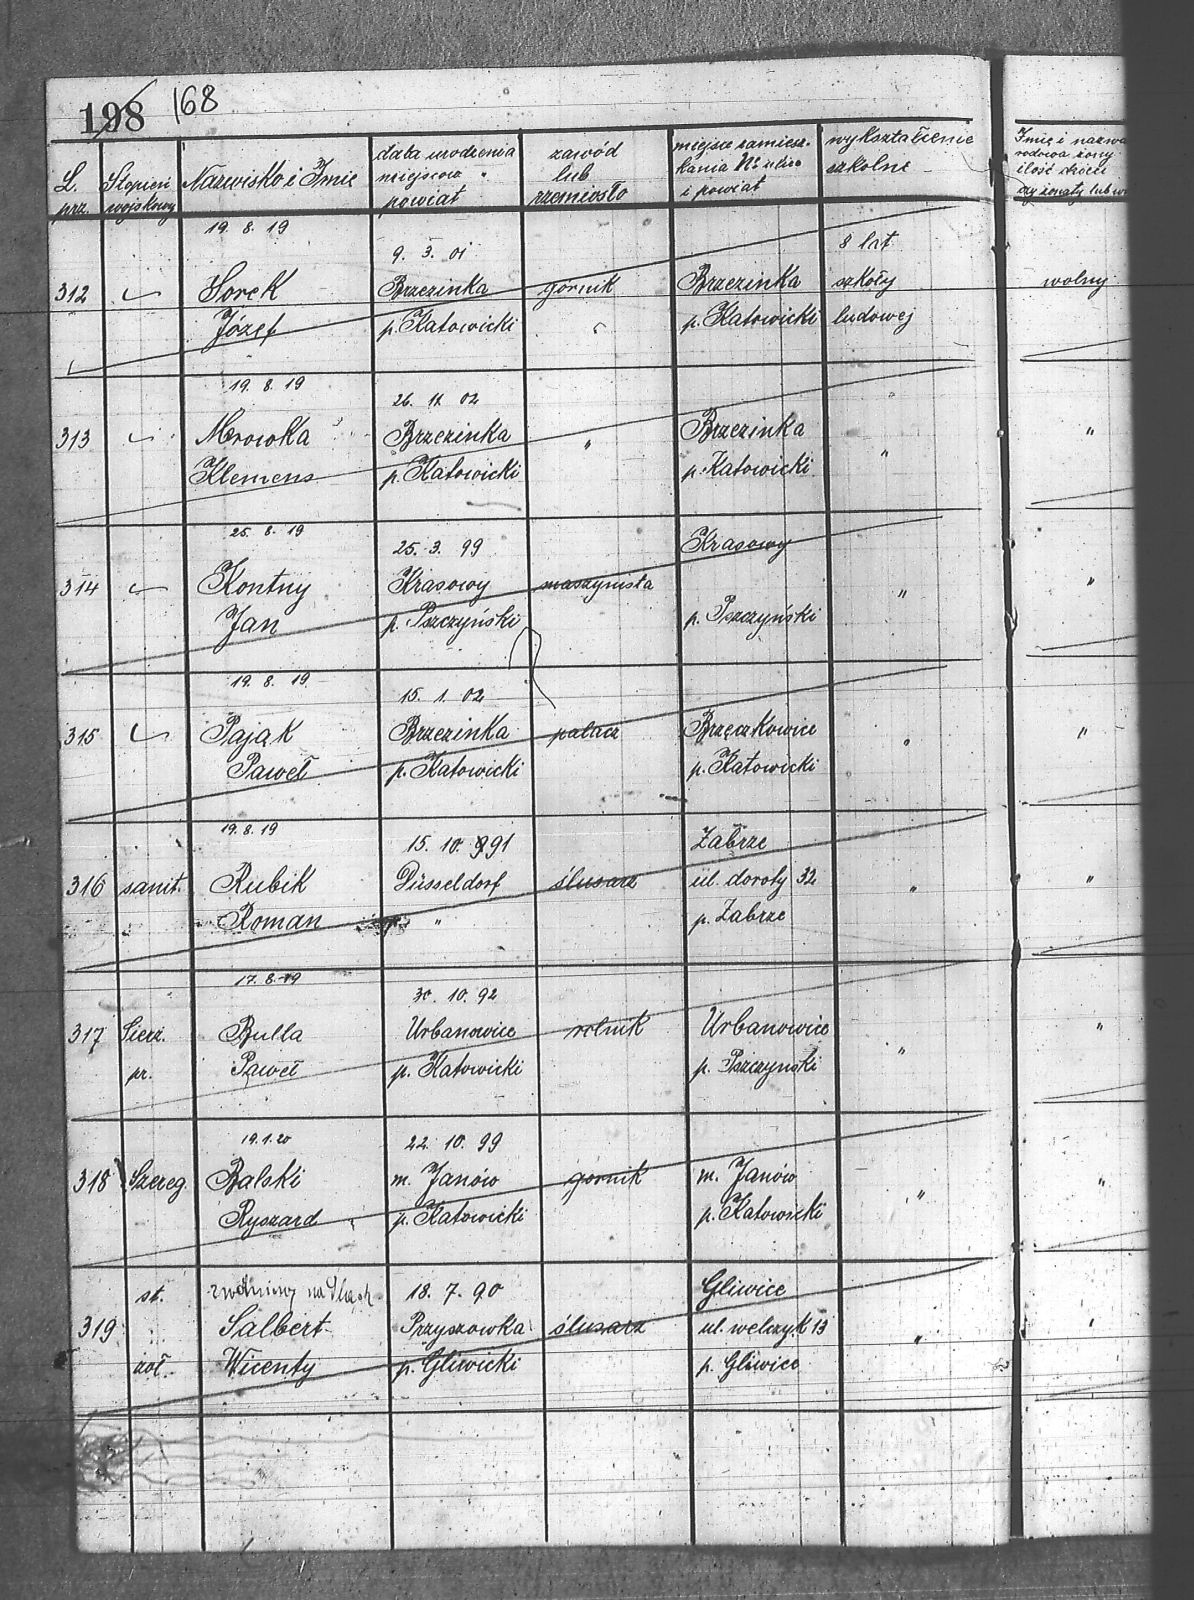 198 168
L. prz.
Stopień wojskowy
Nazwisko i Imię
data urodzenia miejscow. powiat
zawód lub rzemiosło
miejsce zamiesz-kania Nr ulica i powiat
wykształcenie szkolne
Imię i nazwi
rodowe żony
ilość dzieci
czy żonaty lub wo
19. 8. 19
9. 3. 01 8 lat
312 Sorek Brzezinka górnik Brzezinka szkoły wolny
Józef p. Katowicki p. Katowicki ludowej
19. 8. 19
26. 11. 02
313 Mrowka Brzezinka " Brzezinka " "
Klemens p. Katowicki p. Katowicki
25. 8. 19
25. 3. 99 Krasowy
314 Kontny Krasowy maszynista " "
Jan p. Pszczyński p. Pszczyński
19. 8. 19
15. 1. 02
315 Pająk Brzezinka palacz Brzęczkowice " "
Paweł p. Katowicki p. Katowicki
19. 8. 19
15. 10. 91 Zabrze
316 sanit. Rubik Düsseldorf ślusarz ul. doroty 32 " "
Roman " p. Zabrze
17. 8. 19
30. 10. 92
317 Sierż. Bulla Urbanowice rolnik Urbanowice " "
pr. Paweł p. Katowicki p. Pszczynski
19. 1. 20 22. 10. 99
318 Szereg. Balski m. Janów górnik m. Janów " "
Ryszard p. Katowicki p. Katowicki
st. zwolniony na Śląsk 18. 7. 90 Gliwice
319 Salbert Przyszowka ślusarz ul. welczyk 13 " "
żoł. Wicenty p. Gliwicki p. Gliwice